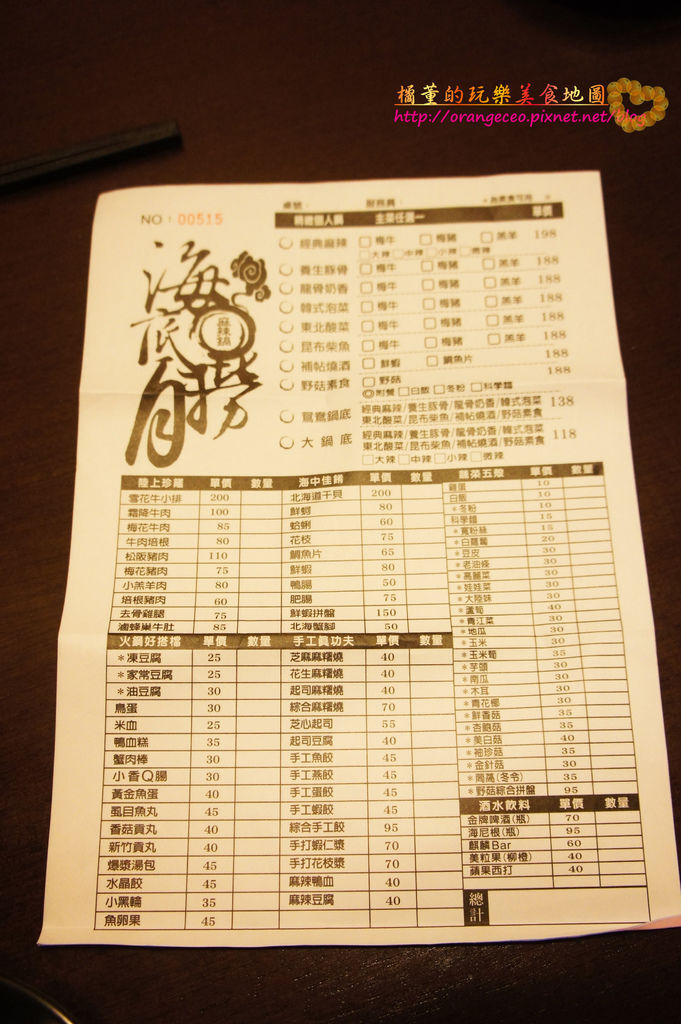 橘董的玩樂美食地圖
http://orangeceo.pixnet.net/blog
NO：00515
桌號： 服務員：
海底撈月
麻辣鍋
主菜任選一 單價
經典麻辣 梅牛 梅豬 羔羊 198
大辣 中辣 小辣 微辣
養生豚骨 梅牛 梅豬 羔羊 188
龍骨奶香 梅牛 梅豬 羔羊 188
韓式泡菜 梅牛 梅豬 羔羊 188
東北酸菜 梅牛 梅豬 羔羊 188
昆布柴魚 梅牛 梅豬 羔羊 188
補帖燒酒 鮮蝦 鯛魚片 188
野菇素食 野菇 188
◎附餐 白飯 冬粉 科學麵
鴛鴦鍋底 經典麻辣/養生豚骨/龍骨奶香/韓式泡菜 138
東北酸菜/昆布柴魚/補帖燒酒/野菇素食
大鍋底 經典麻辣/養生豚骨/龍骨奶香/韓式泡菜 118
東北酸菜/昆布柴魚/補帖燒酒/野菇素食
大辣 中辣 小辣 微辣
陸上珍饈 單價 數量
雪花牛小排 200
霜降牛肉 100
梅花牛肉 85
牛肉培根 80
松阪豬肉 110
梅花豬肉 75
小羔羊肉 80
培根豬肉 60
去骨雞腿 75
滷蜂巢牛肚 85
火鍋好搭檔 單價 數量
＊凍豆腐 25
＊家常豆腐 25
＊油豆腐 30
鳥蛋 30
米血 25
鴨血糕 35
蟹肉棒 30
小香Q腸 30
黃金魚蛋 40
虱目魚丸 45
香菇貢丸 40
新竹貢丸 40
爆漿湯包 45
水晶餃 45
小黑輪 35
魚卵果 45
海中佳餚 單價 數量
北海道干貝 200
鮮蚵 80
蛤蜊 60
花枝 75
鯛魚片 65
鮮蝦 80
鴨腸 50
肥腸 75
鮮蝦拼盤 150
北海蟹腳 50
手工真功夫 單價 數量
芝麻麻糬燒 40
花生麻糬燒 40
起司麻糬燒 40
綜合麻糬燒 70
芝心起司 55
起司豆腐 40
手工魚餃 45
手工燕餃 45
手工蛋餃 45
手工蝦餃 45
綜合手工餃 95
手打蝦仁漿 70
手打花枝漿 70
麻辣鴨血 40
麻辣豆腐 40
蔬菜五穀 單價 數量
雞蛋 10
白飯 10
＊冬粉 10
科學麵 15
＊寬粉絲 15
＊白蘿蔔 20
＊豆皮 30
＊老油條 30
＊高麗菜 30
＊娃娃菜 30
＊大陸妹 30
＊蘆筍 40
＊青江菜 30
＊地瓜 30
＊玉米 30
＊玉米筍 35
＊芋頭 30
＊南瓜 30
＊木耳 30
＊青花椰 30
＊鮮香菇 35
＊杏鮑菇 35
＊美白菇 40
＊袖珍菇 35
＊金針菇 30
＊茼蒿(冬令) 35
＊野菇綜合拼盤 95
酒水飲料 單價 數量
金牌啤酒(瓶) 70
海尼根(瓶) 95
麒麟Bar 60
美粒果(柳橙) 40
蘋果西打 40
40
總計